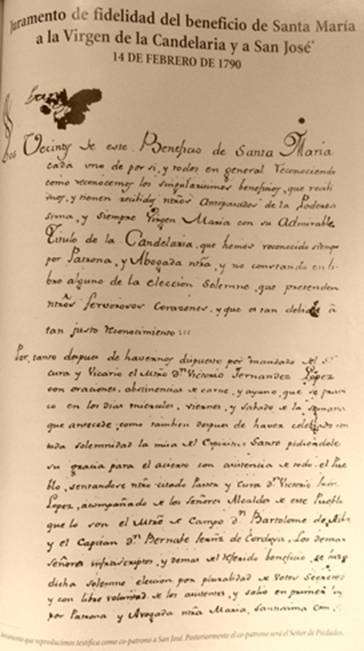 Juramento de fidelidad del beneficio de Santa María
a la Virgen de la Candelaria y a San José
14 DE FEBRERO DE 1790
Los Vecinos de este Beneficio de Santa Maria
cada uno de por si, y todos en general Reconociendo
como reconocemos los singularissimos beneficios, que recibi
mos, y tienen recibidos ntros Antepasados de la Poderos
sima, y siempre Virgen Maria con su Admirable
Titulo de la Candelaria, que hemos reconocido siempre
por Patrona, y Abogada ntra, y no constando en li
bro alguno de la eleccion Solemne, que pretenden
ntros fervorosos Corazones, y que es tan debido à
tan justo reconocimiento:::
Por tanto despues de havernos dispuesto por mandado del Sr
Cura y Vicario el Mtro Dn Victorio Fernandez Lopez
con oraciones, abstinencias de carne, y ayuno, que se
co en los dias miercoles, viernes, y sabado de la semana
que antecede, como tambien despues de haver celebrado con
toda solemnidad la misa del Espiritu Santo pidiendole
su gracia para el acierto con asistencia de todo el Pue
blo, sentandose ntro citado Parroco y Cura Dn Victorio
Lopez, acompañado de los Señores Alcaldes de este Pueblo
que lo son el Mtre de Campo Dn Bartolome de
y el Capitan Dn Bernabe de Cordova, Los demas
Señores infrascriptos, y demas del referido beneficio, se hizo
dicha solemne eleccion por pluralidad de Votos Secretos
y con libre voluntad de los asistentes, y salio en primer
por Patrona y Abogada ntra Maria Santissima con
documento que reproducimos testifica como co-patrono a San José. Posteriormente el co-patrono será el Señor de Piedades.